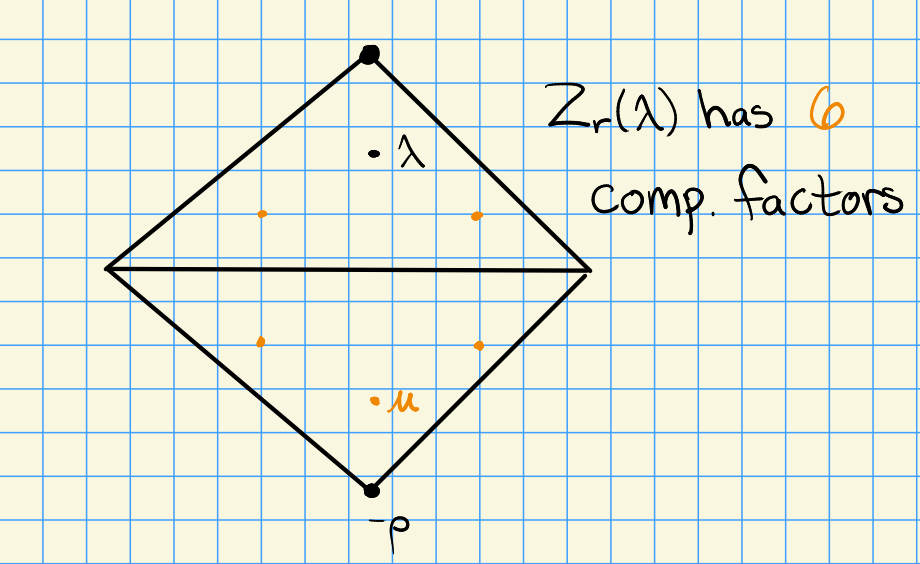 Zr(λ) has 6
• λ
comp. factors
• μ
-ρ